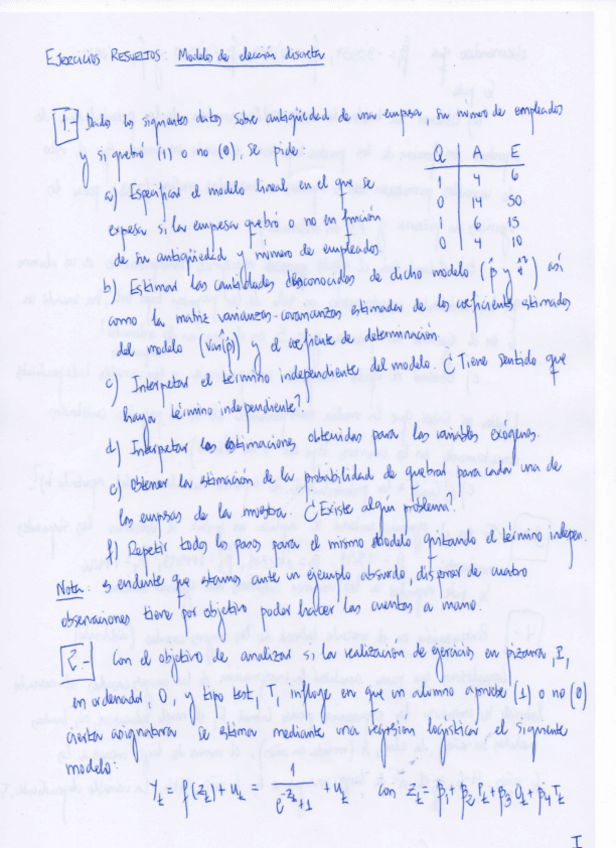 EJERCICIOS RESUELTOS: Modelos de elección discreta
1.- Dados los siguientes datos sobre antigüedad de una empresa, su número de empleados
y si quebró (1) o no (0), se pide:
Q A E
1 4 6
0 14 50
1 6 15
0 4 10
a) Especificar el modelo lineal en el que se
expresa si la empresa quebró o no en función
de su antigüedad y número de empleados.
b) Estimar las cantidades desconocidas de dicho modelo (β̂ y σ̂²) así
como la matriz varianzas-covarianzas estimadas de los coeficientes estimados
del modelo (Var(β̂)) y el coeficiente de determinación.
c) Interpretar el término independiente del modelo. ¿Tiene sentido que
haya término independiente?
d) Interpretar las estimaciones obtenidas para las variables exógenas.
e) Obtener la estimación de la probabilidad de quebrar para cada una de
las empresas de la muestra. ¿Existe algún problema?
f) Repetir todos los pasos para el mismo modelo quitando el término indepen.
Nota: es evidente que estamos ante un ejemplo absurdo, disponer de cuatro
observaciones tiene por objetivo poder hacer las cuentas a mano.
2.- Con el objetivo de analizar si la realización de ejercicios en pizarra, P,
en ordenador, O, y tipo test, T, influye en que un alumno apruebe (1) o no (0)
cierta asignatura se estima mediante una regresión logística el siguiente
modelo:
Y_t = f(Z_t) + u_t = 1/(e^{-Z_t}+1) + u_t, con Z_t = β_1 + β_2 P_t + β_3 O_t + β_4 T_t
I